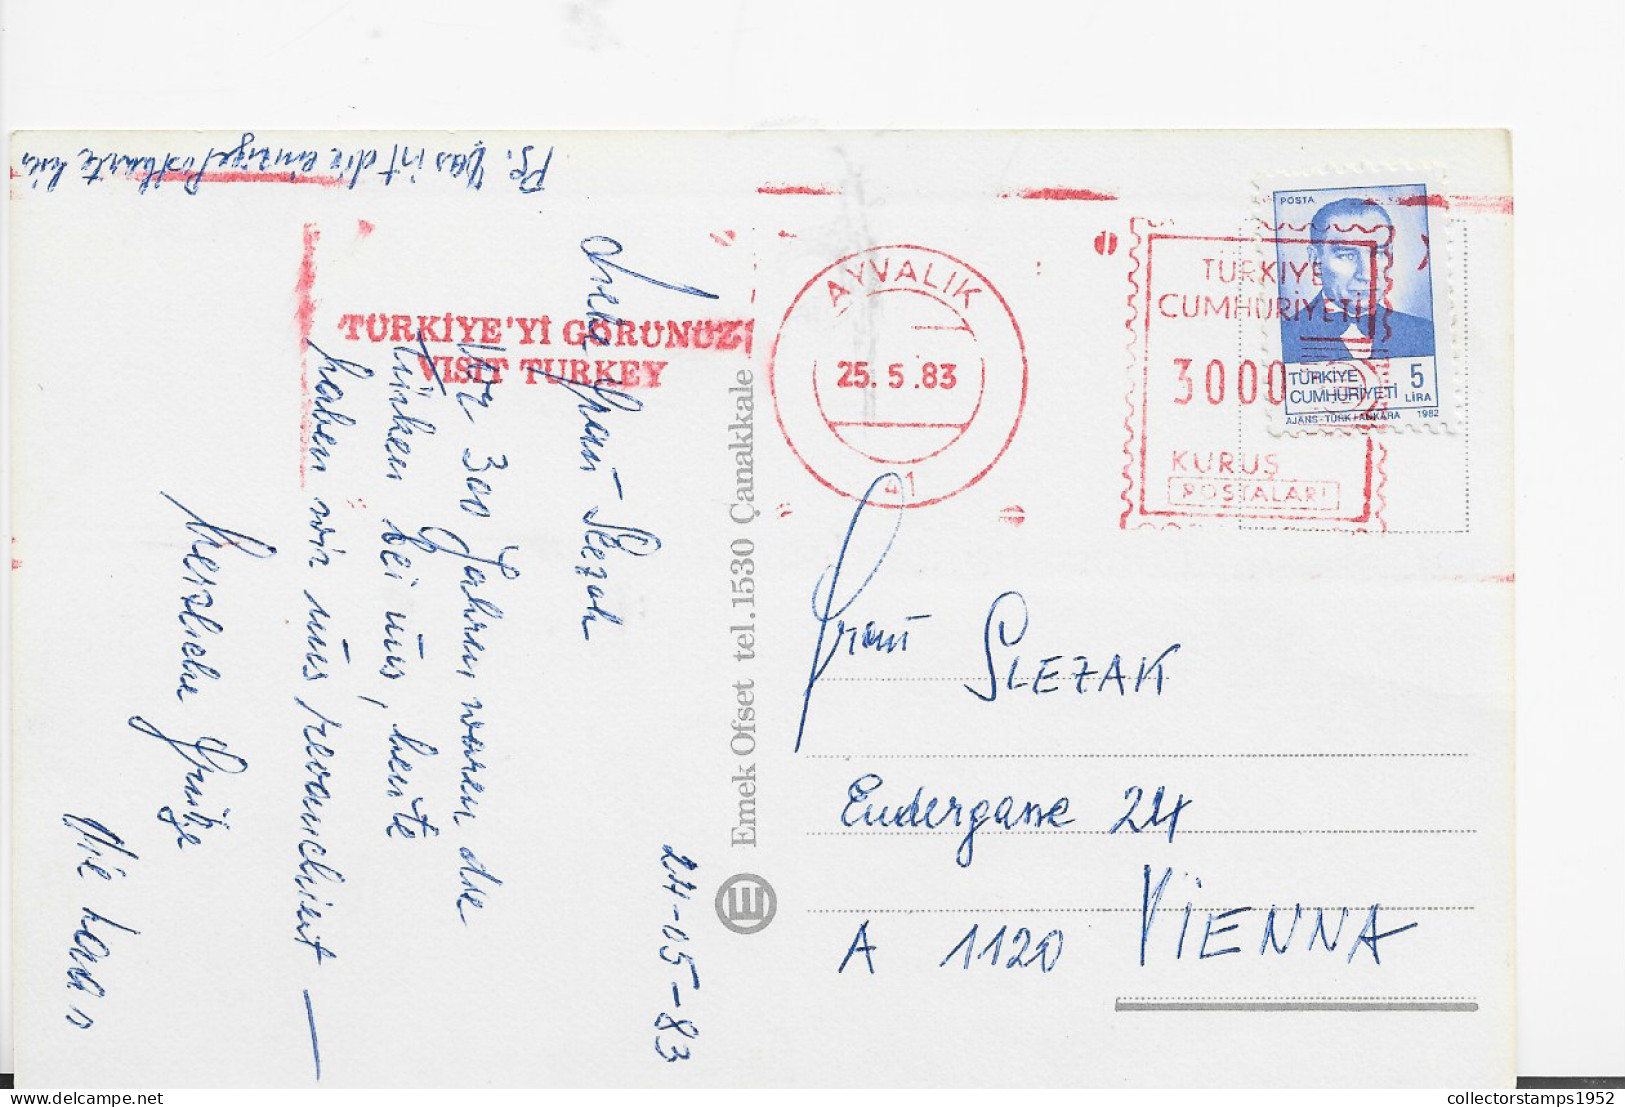 Ps. Das ist die einzige Postkarte hier
24-05-83
Liebe Frau Slezak
Vor 300 Jahren waren die
Türken bei uns, heute
haben wir uns revanchiert —
Herzliche Grüße
TÜRKİYE'Yİ GÖRÜNÜZ
VISIT TURKEY
AYVALIK
25.5.83
41
TÜRKİYE
CUMHURİYETİ
3000
KURUŞ
POSTALARI
POSTA
TÜRKİYE
CUMHURİYETİ
5
LİRA
AJANS-TÜRK/ANKARA 1982
Emek Ofset tel.1530 Çanakkale
E
Frau SLEZAK
Endergasse 24
A 1120 VIENNA
collectorstamps1952